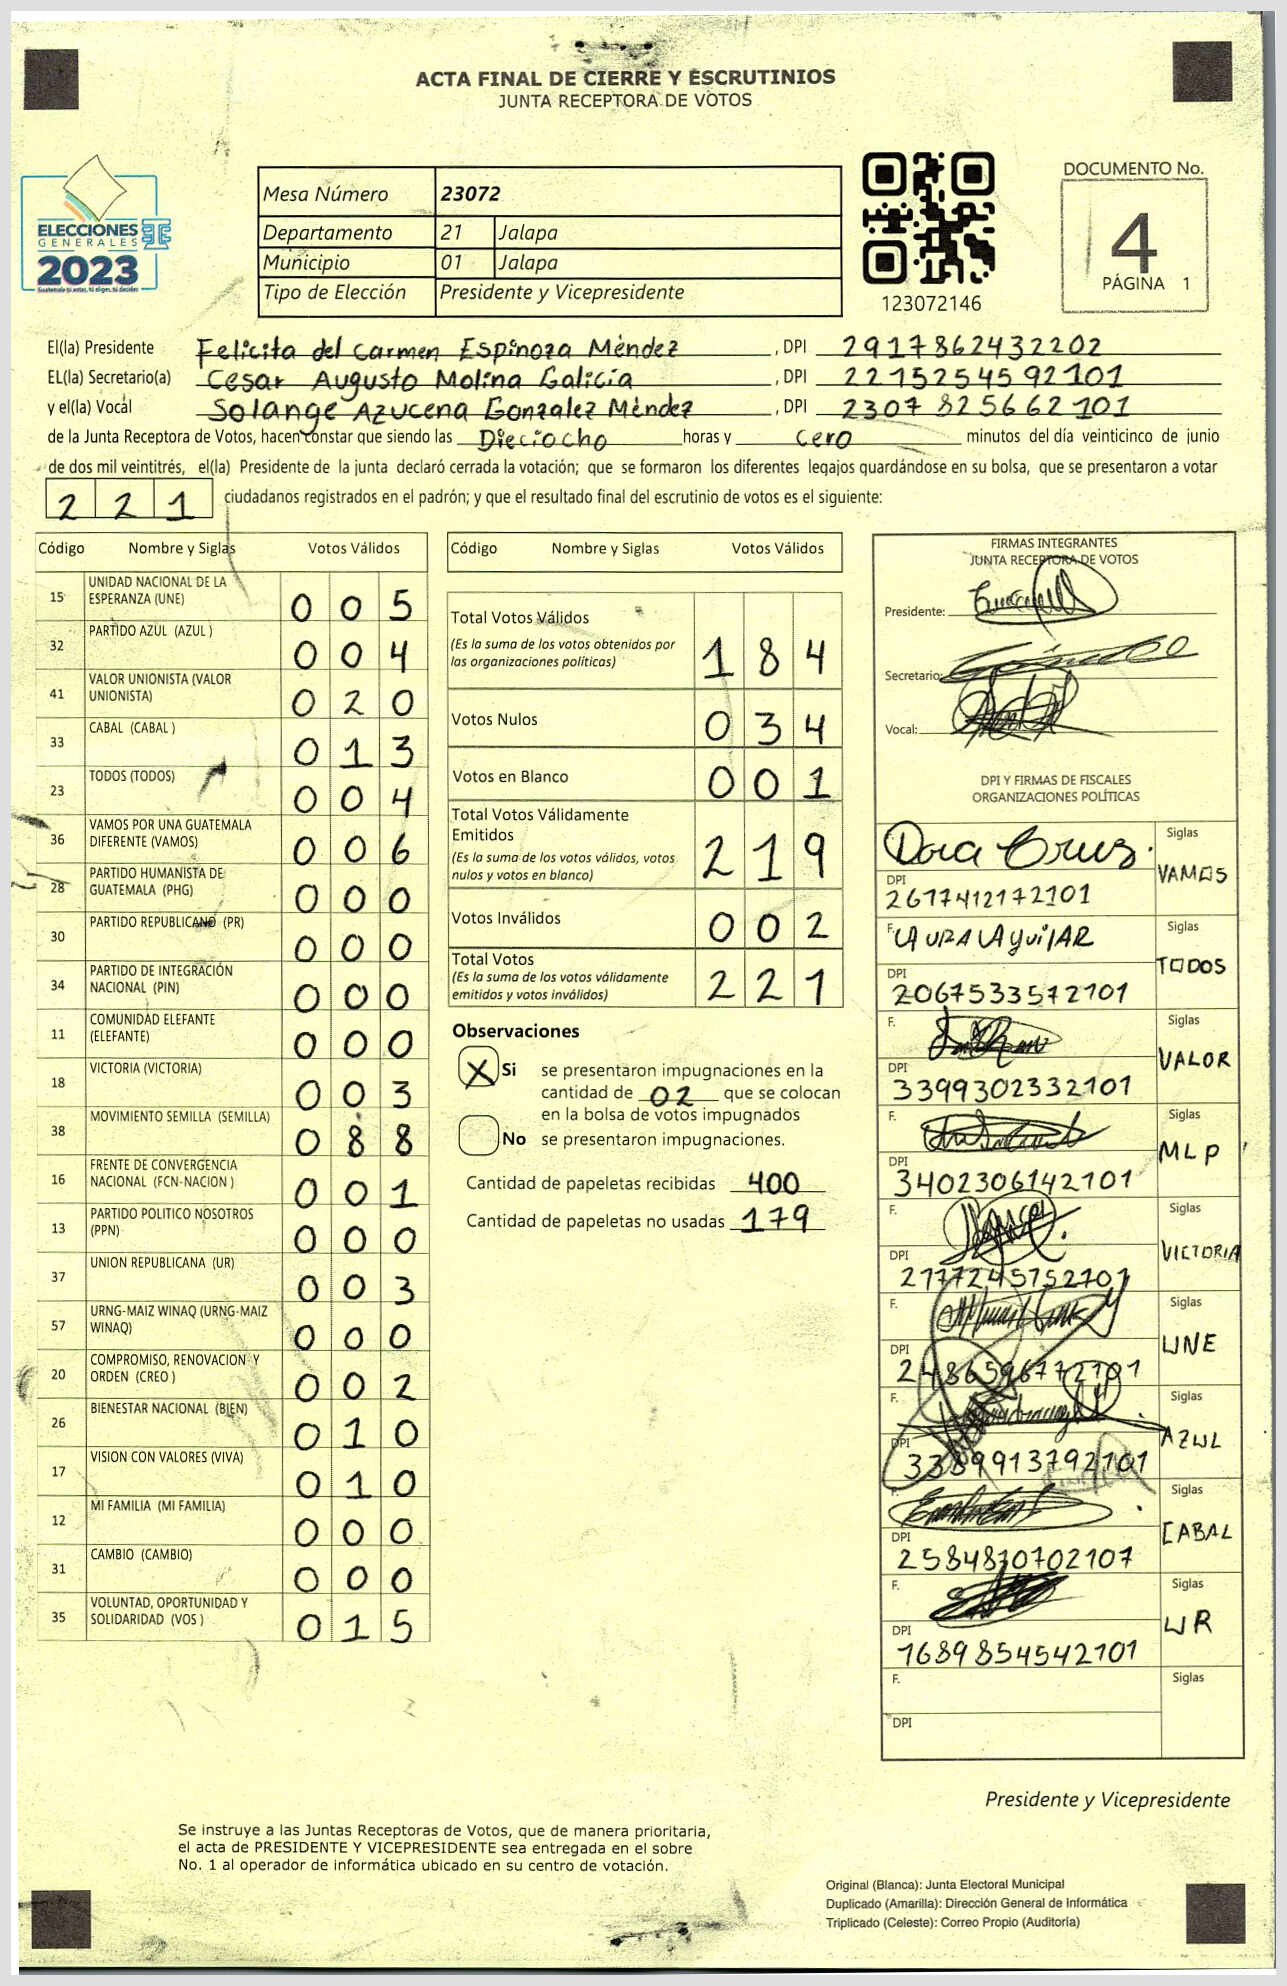 ACTA FINAL DE CIERRE Y ESCRUTINIOS
JUNTA RECEPTORA DE VOTOS
ELECCIONES
GENERALES
2023
Mesa Número 23072
Departamento 21 Jalapa
Municipio 01 Jalapa
Tipo de Elección Presidente y Vicepresidente
123072146
DOCUMENTO No.
4
PÁGINA 1
El(la) Presidente Felicita del Carmen Espinoza Méndez, DPI 2917862432202
EL(la) Secretario(a) Cesar Augusto Molina Galicia, DPI 2215254592101
y el(la) Vocal Solange Azucena Gonzalez Méndez, DPI 2307825662101
de la Junta Receptora de Votos, hacen constar que siendo las Dieciocho horas y cero minutos del día veinticinco de junio
de dos mil veintitrés, el(la) Presidente de la junta declaró cerrada la votación; que se formaron los diferentes legajos quardándose en su bolsa, que se presentaron a votar
221 ciudadanos registrados en el padrón; y que el resultado final del escrutinio de votos es el siguiente:
Código Nombre y Siglas Votos Válidos
15 UNIDAD NACIONAL DE LA ESPERANZA (UNE) 005
32 PARTIDO AZUL (AZUL ) 004
41 VALOR UNIONISTA (VALOR UNIONISTA) 020
33 CABAL (CABAL ) 013
23 TODOS (TODOS) 004
36 VAMOS POR UNA GUATEMALA DIFERENTE (VAMOS) 006
28 PARTIDO HUMANISTA DE GUATEMALA (PHG) 000
30 PARTIDO REPUBLICANO (PR) 000
34 PARTIDO DE INTEGRACIÓN NACIONAL (PIN) 000
11 COMUNIDAD ELEFANTE (ELEFANTE) 000
18 VICTORIA (VICTORIA) 003
38 MOVIMIENTO SEMILLA (SEMILLA) 088
16 FRENTE DE CONVERGENCIA NACIONAL (FCN-NACION ) 001
13 PARTIDO POLITICO NOSOTROS (PPN) 000
37 UNION REPUBLICANA (UR) 003
57 URNG-MAIZ WINAQ (URNG-MAIZ WINAQ) 000
20 COMPROMISO, RENOVACION Y ORDEN (CREO ) 002
26 BIENESTAR NACIONAL (BIEN) 010
17 VISION CON VALORES (VIVA) 010
12 MI FAMILIA (MI FAMILIA) 000
31 CAMBIO (CAMBIO) 000
35 VOLUNTAD, OPORTUNIDAD Y SOLIDARIDAD (VOS ) 015
Código Nombre y Siglas Votos Válidos
Total Votos Válidos 184
(Es la suma de los votos obtenidos por
las organizaciones políticas)
Votos Nulos 034
Votos en Blanco 001
Total Votos Válidamente
Emitidos 219
(Es la suma de los votos válidos, votos
nulos y votos en blanco)
Votos Inválidos 002
Total Votos 221
(Es la suma de los votos válidamente
emitidos y votos inválidos)
Observaciones
X Si se presentaron impugnaciones en la
cantidad de 02 que se colocan
en la bolsa de votos impugnados
No se presentaron impugnaciones.
Cantidad de papeletas recibidas 400
Cantidad de papeletas no usadas 179
FIRMAS INTEGRANTES
JUNTA RECEPTORA DE VOTOS
Presidente:
Secretario:
Vocal:
DPI Y FIRMAS DE FISCALES
ORGANIZACIONES POLÍTICAS
Dora Cruz. Siglas VAMOS
DPI 2617412172101
F. LAURA LAguilAR Siglas TODOS
DPI 2067533572101
F. Siglas VALOR
DPI 3399302332101
F. Siglas MLP
DPI 3402306142101
F. Siglas VICTORIA
DPI 2177245752101
F. Siglas UNE
DPI 2486596772101
F. Siglas AZUL
DPI 3389913792101
F. Siglas CABAL
DPI 2584870702107
F. Siglas UR
DPI 1689854542101
F. Siglas
DPI
Presidente y Vicepresidente
Se instruye a las Juntas Receptoras de Votos, que de manera prioritaria,
el acta de PRESIDENTE Y VICEPRESIDENTE sea entregada en el sobre
No. 1 al operador de informática ubicado en su centro de votación.
Original (Blanca): Junta Electoral Municipal
Duplicado (Amarilla): Dirección General de Informática
Triplicado (Celeste): Correo Propio (Auditoría)